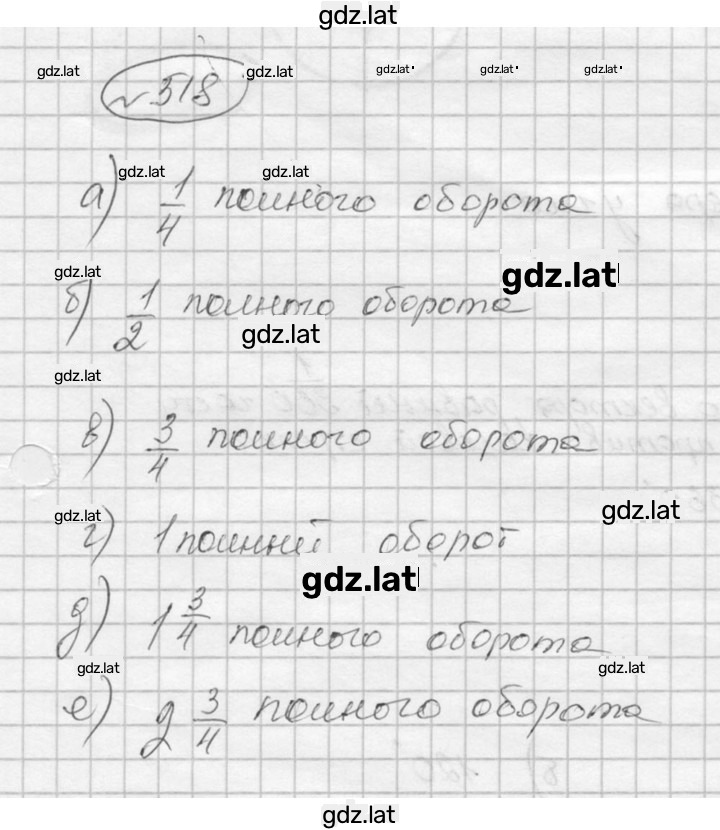 gdz.lat
gdz.lat gdz.lat gdz.lat gdz.lat gdz.lat
№ 518
gdz.lat gdz.lat
а) 1/4 полного оборота
gdz.lat gdz.lat
б) 1/2 полного оборота
gdz.lat
gdz.lat
в) 3/4 полного оборота
gdz.lat gdz.lat
г) 1 полный оборот
gdz.lat
д) 1 3/4 полного оборота
gdz.lat gdz.lat
е) 2 3/4 полного оборота
gdz.lat